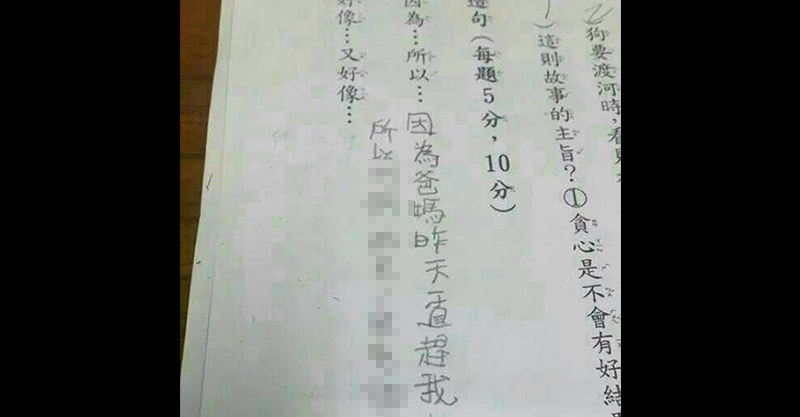 狗要渡河時，看見
這則故事的主旨？①貪心是不會有好結果
造句（每題5分，10分）
因為…所以…
因為爸媽昨天一直趕我
所以
好像…又好像…